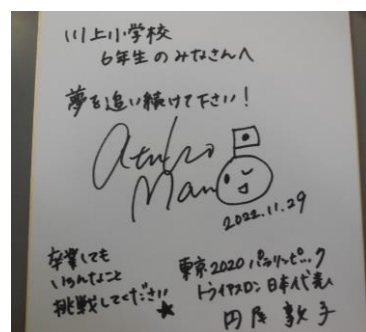 川上小学校
6年生のみなさんへ
夢を追い続けて下さい!
Atuko
Mano
2022.11.29
卒業しても
いろんなこと
挑戦してください
東京2020パラリンピック
トライアスロン日本代表
円尾敦子